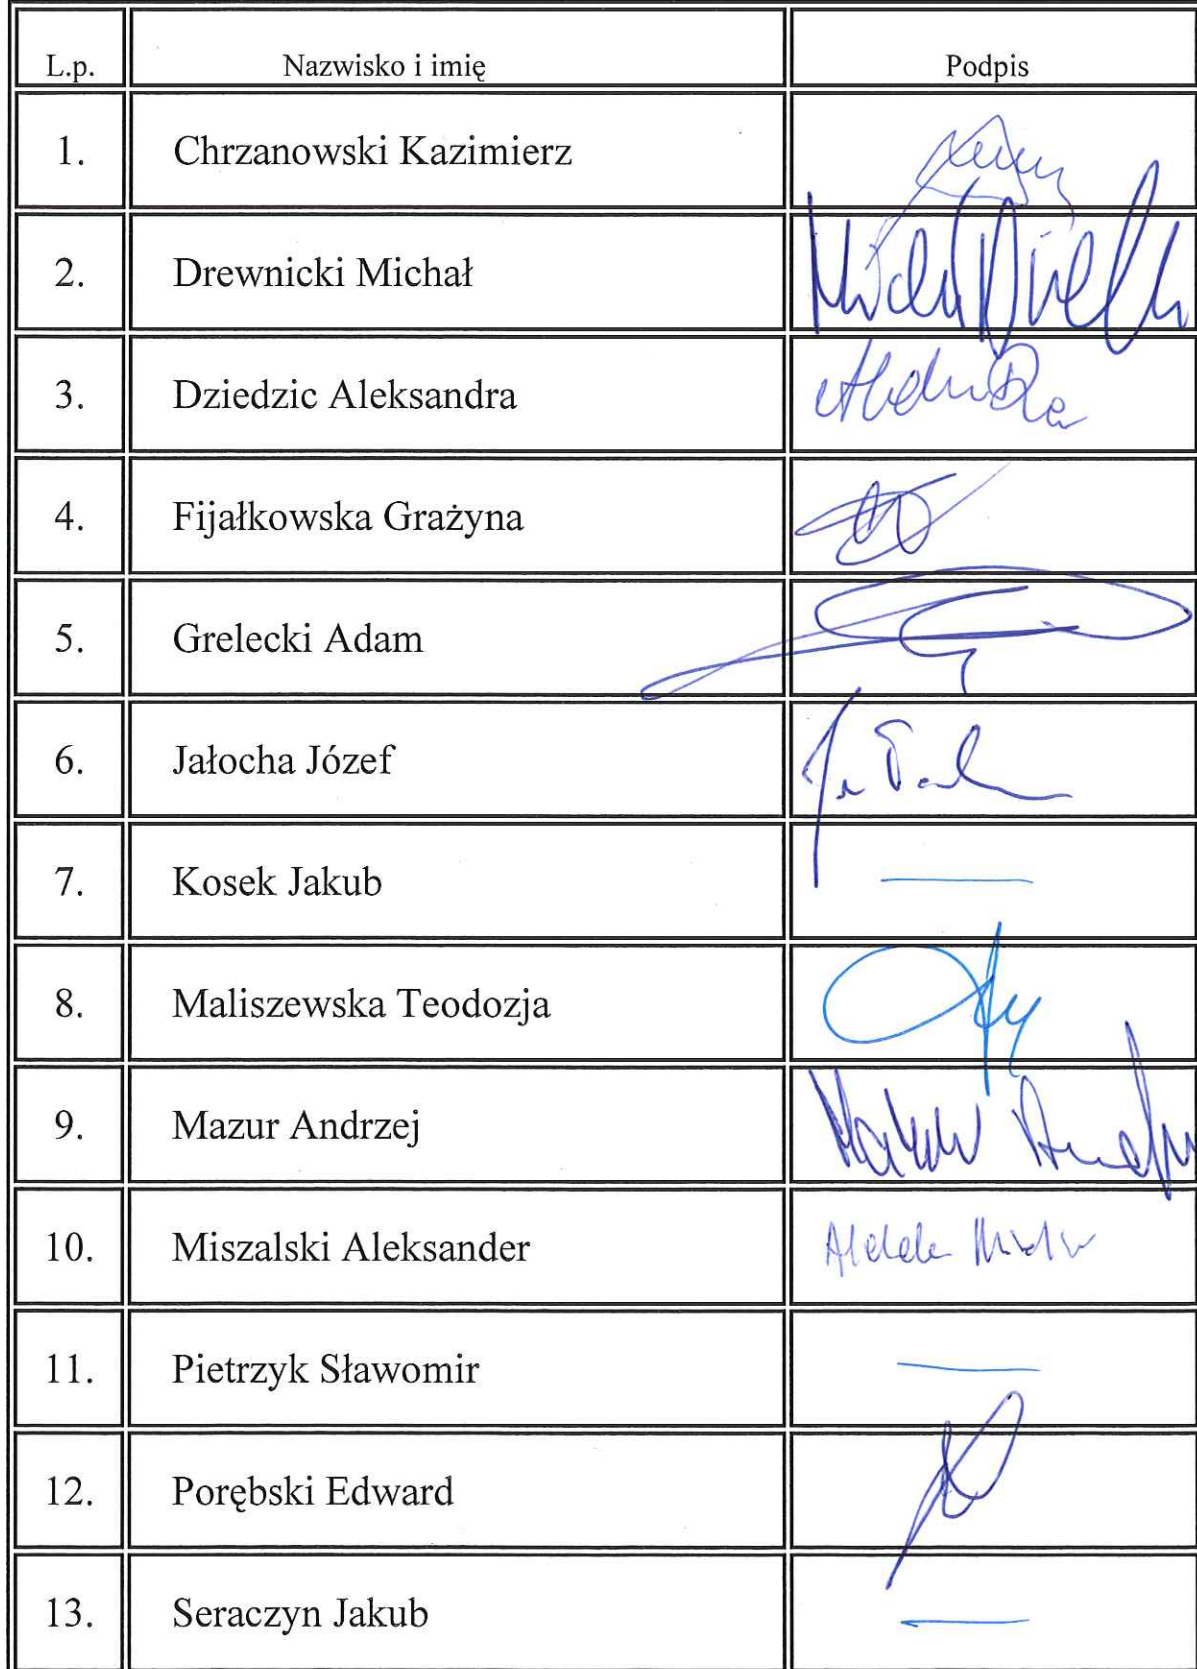 L.p. Nazwisko i imię Podpis
1. Chrzanowski Kazimierz
2. Drewnicki Michał
3. Dziedzic Aleksandra
4. Fijałkowska Grażyna
5. Grelecki Adam
6. Jałocha Józef
7. Kosek Jakub —
8. Maliszewska Teodozja
9. Mazur Andrzej
10. Miszalski Aleksander
11. Pietrzyk Sławomir —
12. Porębski Edward
13. Seraczyn Jakub —